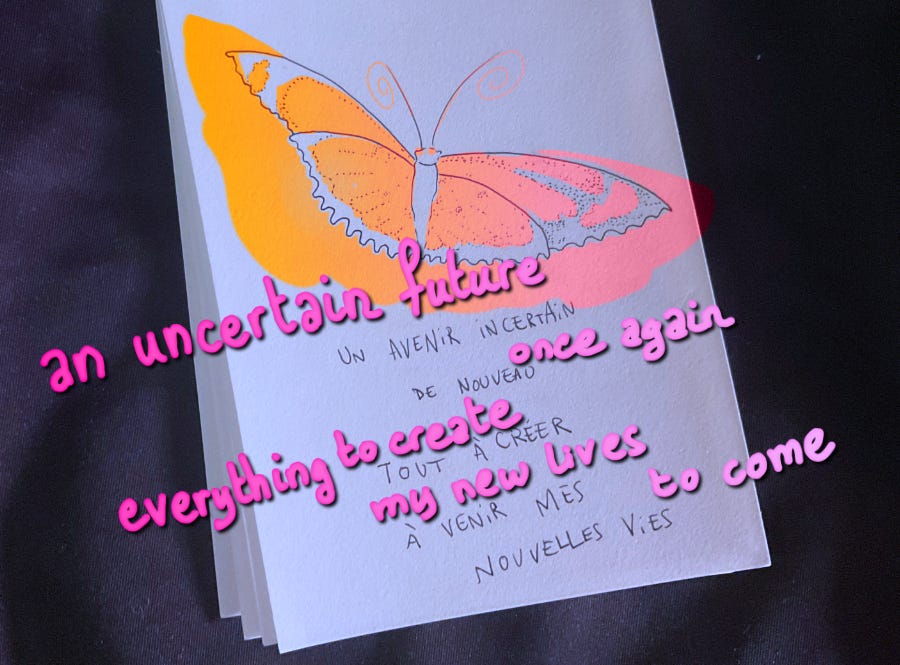 an uncertain future
UN AVENIR INCERTAIN
once again
DE NOUVEAU
everything to create
TOUT À CRÉER
my new lives
to come
À VENIR MES
NOUVELLES VIES